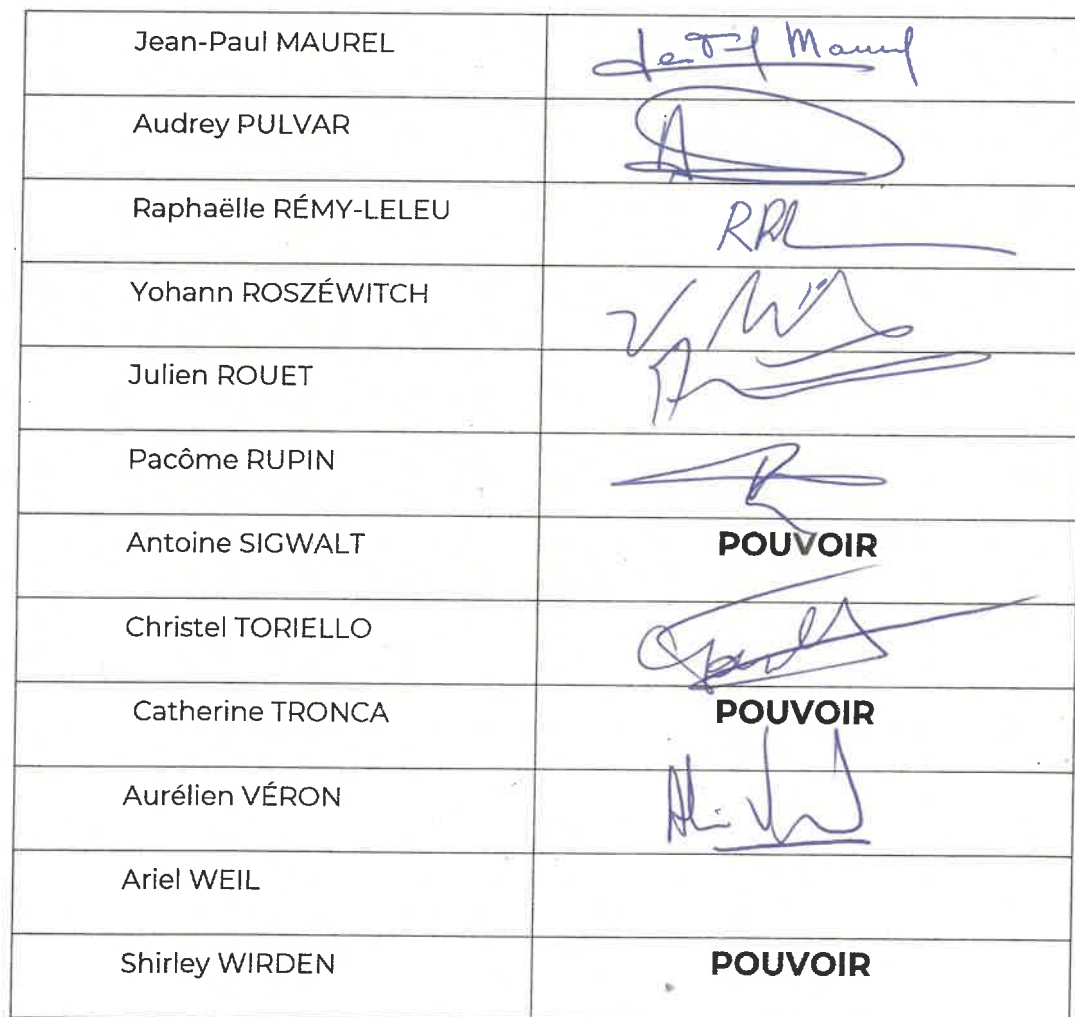 Jean-Paul MAUREL
Audrey PULVAR
Raphaëlle RÉMY-LELEU
RRL
Yohann ROSZÉWITCH
Julien ROUET
Pacôme RUPIN
Antoine SIGWALT POUVOIR
Christel TORIELLO
Catherine TRONCA POUVOIR
Aurélien VÉRON
Ariel WEIL
Shirley WIRDEN POUVOIR